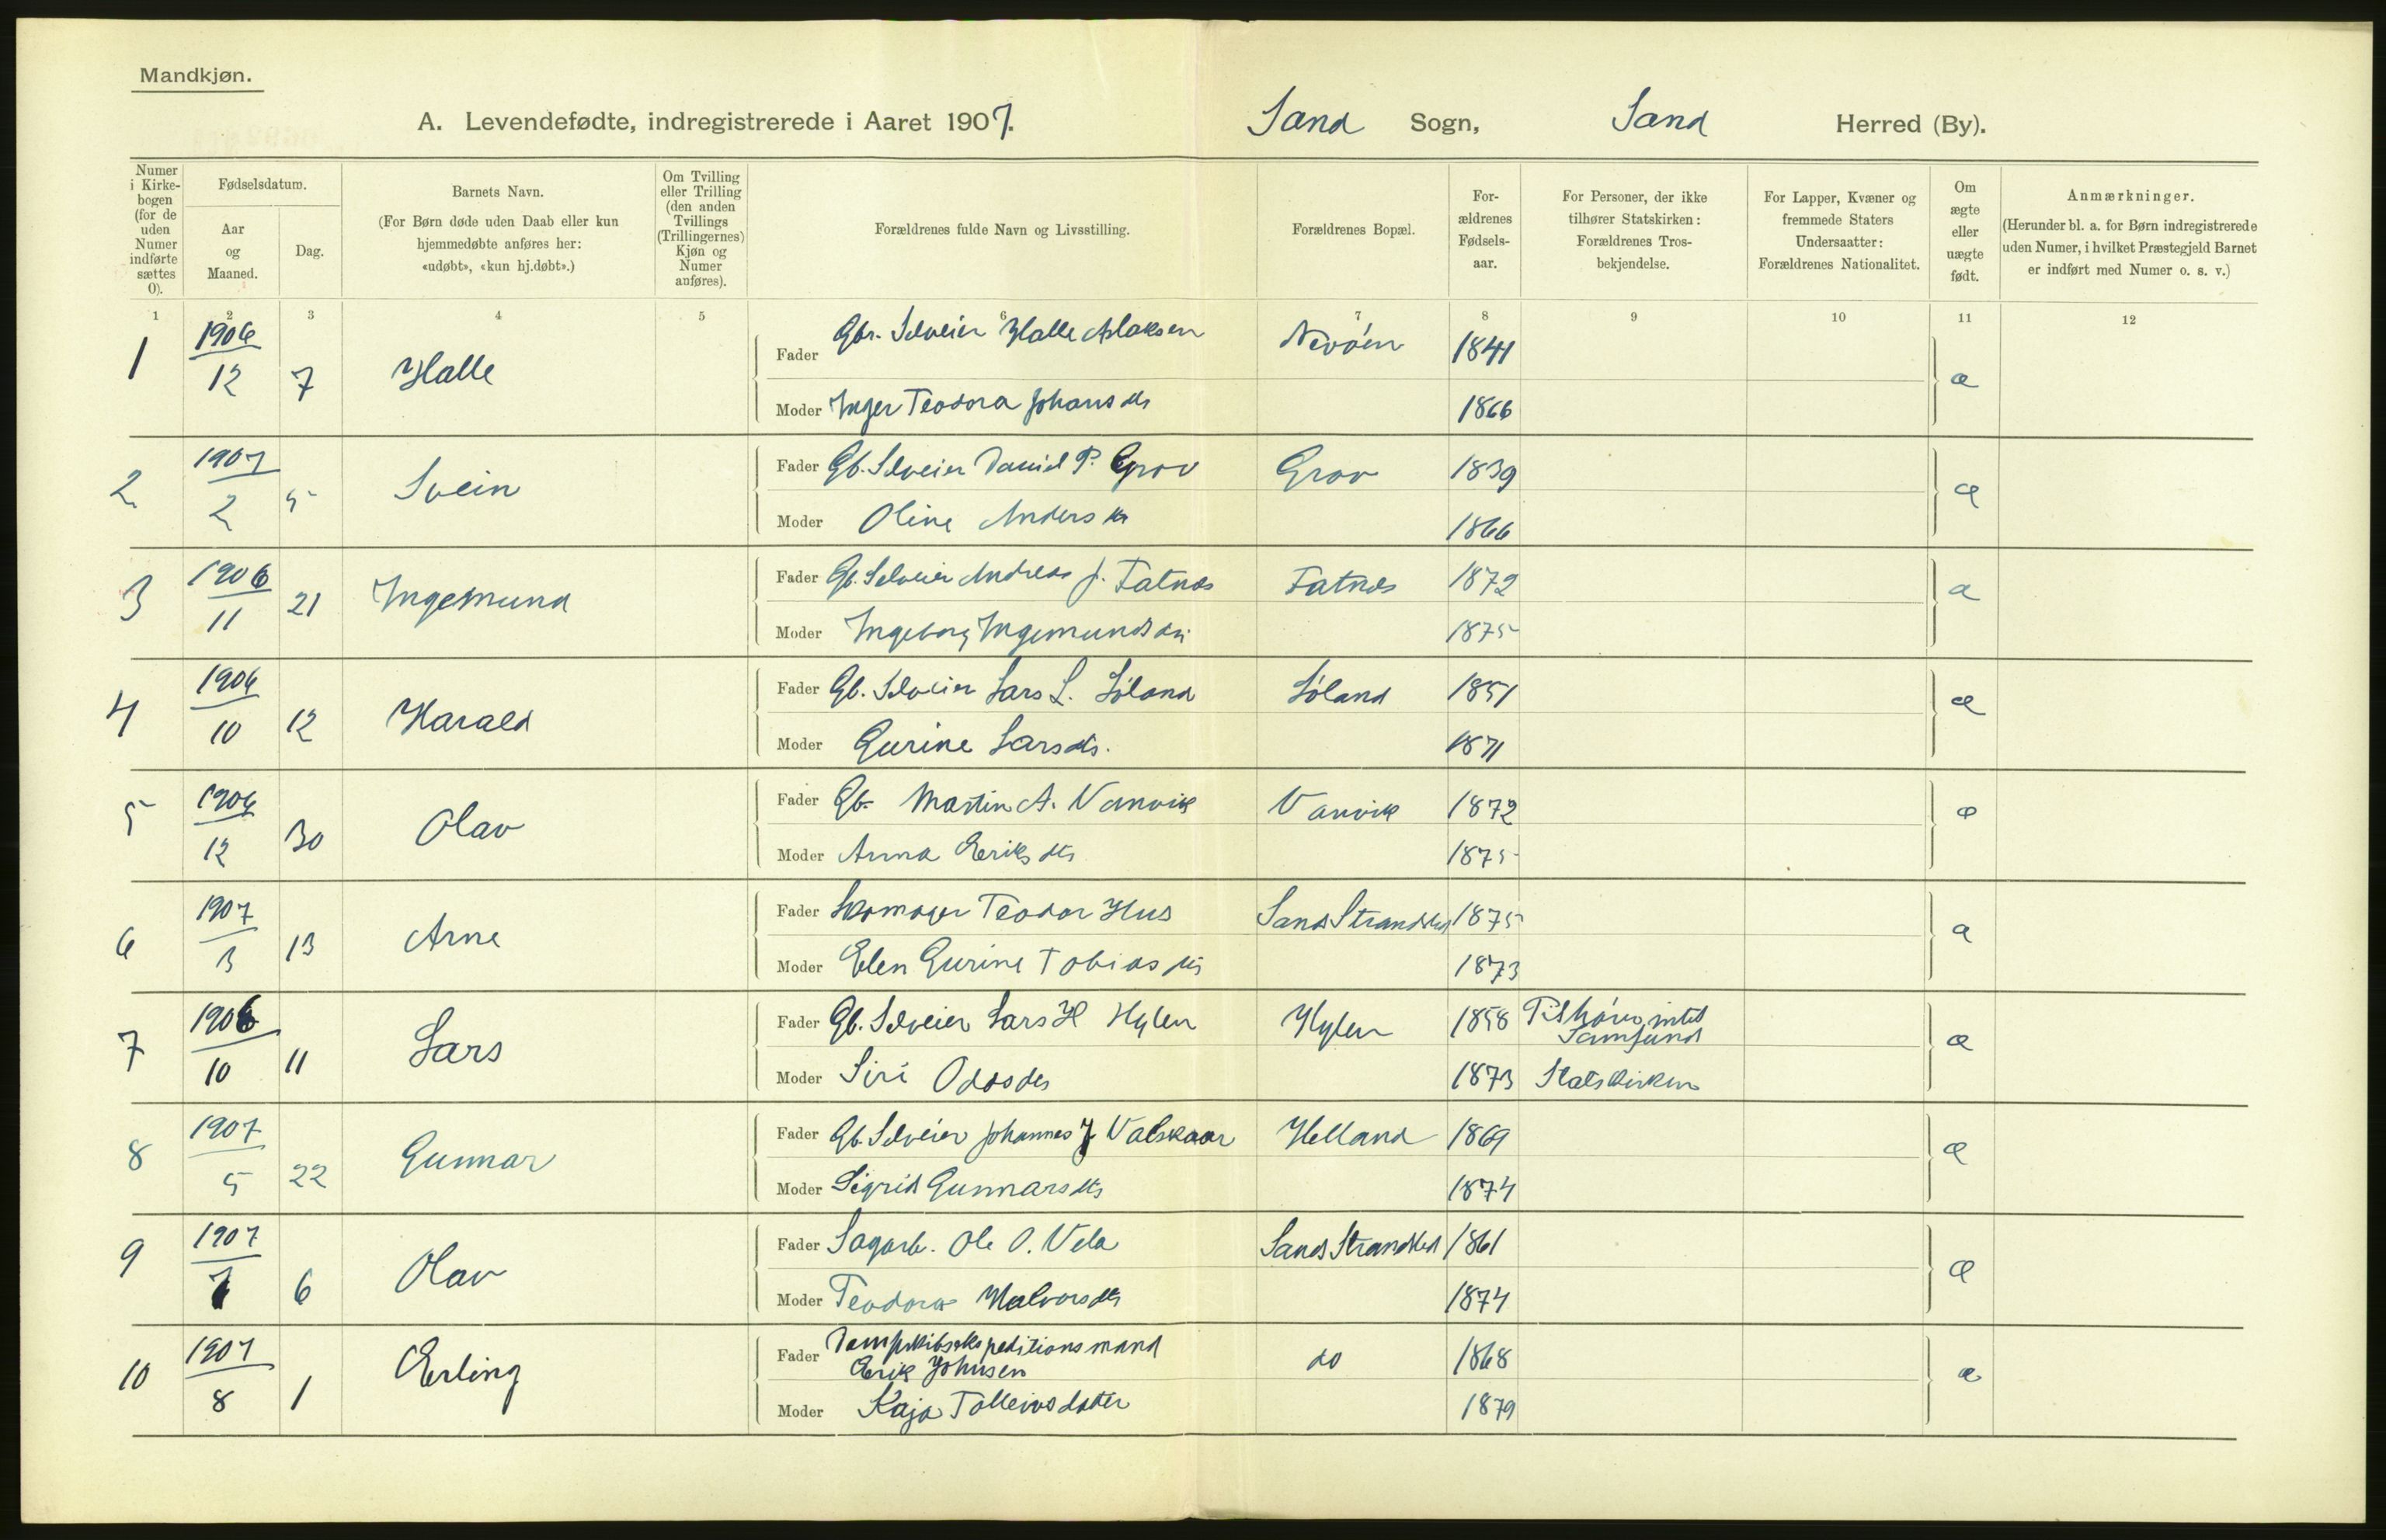 Mandkjøn.
A. Levendefødte, indregistrerede i Aaret 1907. Sand Sogn, Sand Herred (By).
Numer i Kirkebogen (for de uden Numer indførte sættes 0).
Fødselsdatum.
Aar og Maaned.
Dag.
Barnets Navn.
(For Børn døde uden Daab eller kun hjemmedøbte anføres her: «udøbt», «kun hj.døbt».)
Om Tvilling eller Trilling (den anden Tvillings (Trillingernes) Kjøn og Numer anføres).
Forældrenes fulde Navn og Livsstilling.
Forældrenes Bopæl.
Forældrenes Fødselsaar.
For Personer, der ikke tilhører Statskirken: Forældrenes Trosbekjendelse.
For Lapper, Kvæner og fremmede Staters Undersaatter: Forældrenes Nationalitet.
Om ægte eller uægte født.
Anmærkninger.
(Herunder bl. a. for Børn indregistrerede uden Numer, i hvilket Præstegjeld Barnet er indført med Numer o. s. v.)
1 2 3 4 5 6 7 8 9 10 11 12
1 1906 12 7 Halle
Fader Gbr. Selveier Halle Aslaksen 1841
Moder Inger Teodora Johansdtr 1866
æ
2 1907 2 5 Svein
Fader Gb. Selveier Daniel P. Grov Grov 1839
Moder Oline Anders dtr 1866
æ
3 1906 11 21 Ingemund
Fader Gb. Selveier Andreas J. Fatnes Fatnes 1872
Moder Ingeborg Ingemundsdtr 1875
æ
4 1906 10 12 Harald
Fader Gb. Selveier Lars L. Løland Løland 1851
Moder Gurine Larsdtr. 1871
æ
5 1906 12 30 Olav
Fader Gb. Martin A. Vanvik Vanvik 1872
Moder Anna Eriksdtr 1875
æ
6 1907 3 13 Arne
Fader Skomager Teodor Hus Sands Strandsted 1875
Moder Elen Gurine Tobiasdtr 1873
æ
7 1906 10 11 Lars
Fader Gb. Selveier Lars H Hylen Hylen 1858 Tilhører intet Samfund
Moder Siri Odds dtr 1873 Statskirken
æ
8 1907 5 22 Gunnar
Fader Gb. Selveier Johannes J Valskaar Helland 1869
Moder Sigrid Gunnarsdtr 1874
æ
9 1907 7 6 Olav
Fader Sagarb. Ole O. Vela Sands Strandsted 1861
Moder Teodora Halvorsdtr 1874
æ
10 1907 8 1 Erling
Fader Dampskibsekspeditionsmand
Erik Johnsen do 1868
Moder Kaja Tolleivsdatter 1879
æ